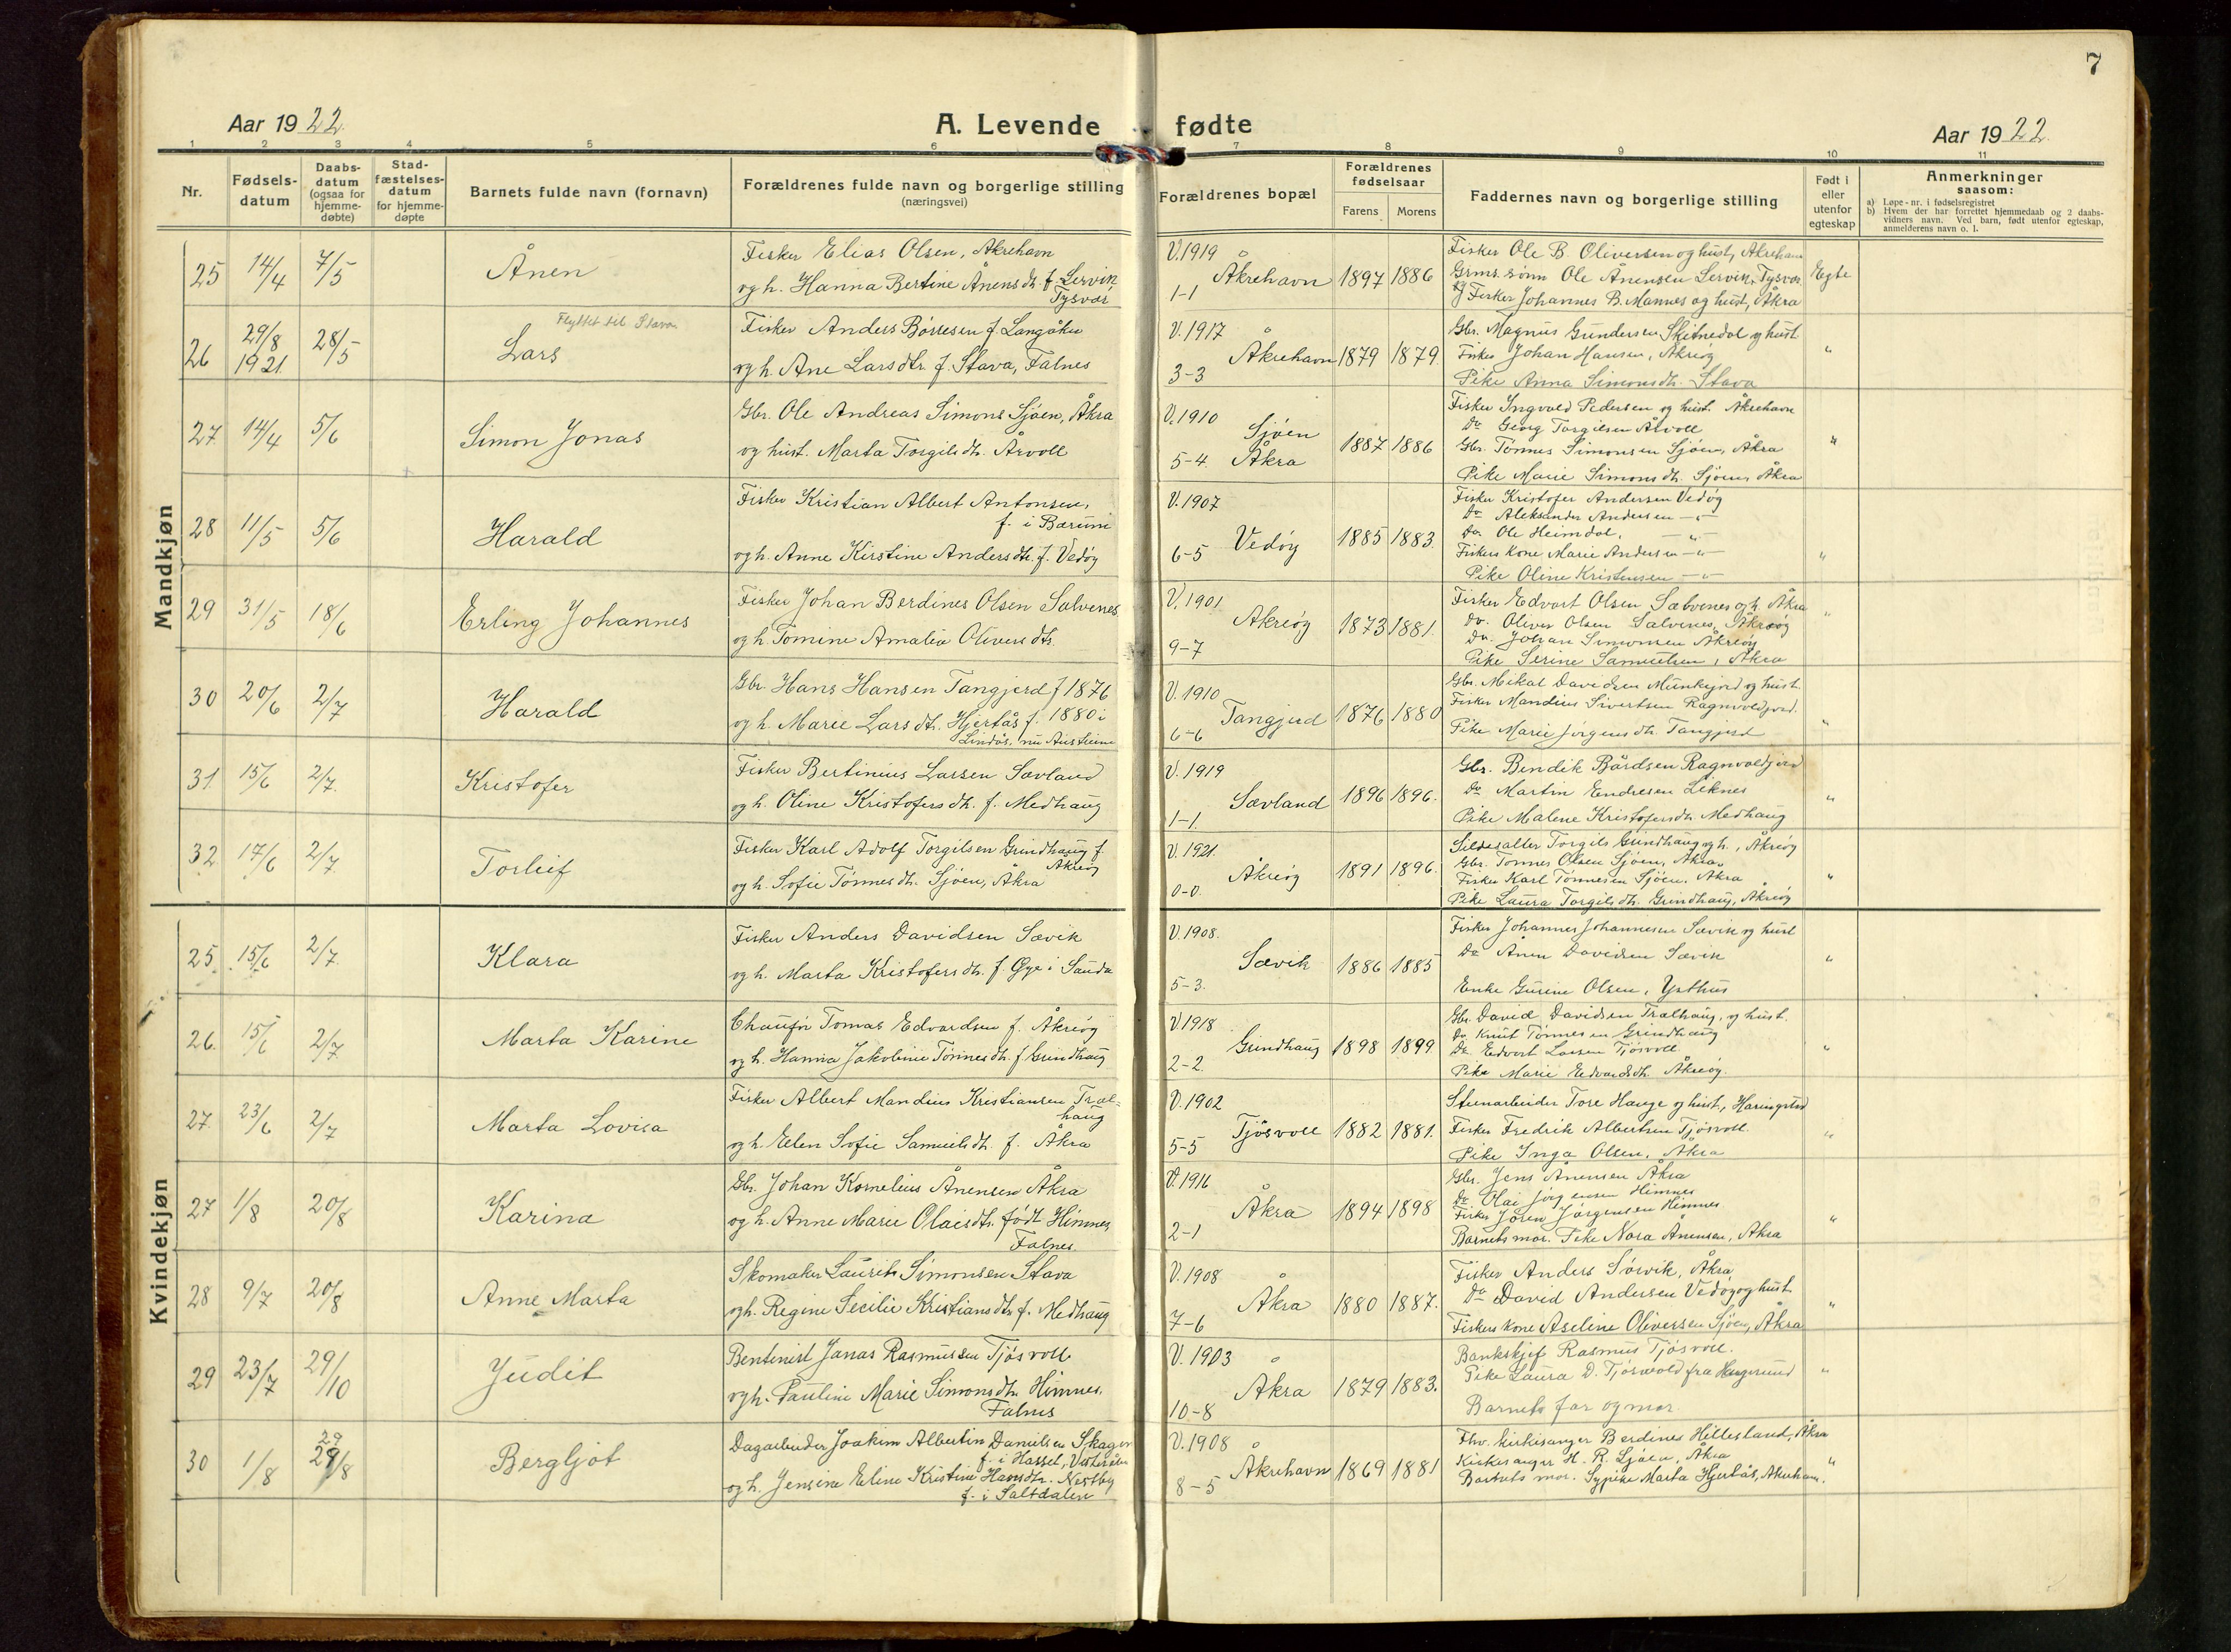 7
Aar 1922.
A. Levende fødte
Aar 1922.
1 2 3 4 5 6 7 8 9 10 11
Nr.
Fødsels-datum
Daabs-datum (ogsaa for hjemme-døbte)
Stad-fæstelses-datum for hjemme-døpte
Barnets fulde navn (fornavn)
Forældrenes fulde navn og borgerlige stilling
(næringsvei)
Forældrenes bopæl
Forældrenes fødselsaar
Farens Morens
Faddernes navn og borgerlige stilling
Født i eller utenfor egteskap
Anmerkninger
saasom:
a) Løpe-nr. i fødselsregistret
b) Hvem der har forrettet hjemmedaab og 2 daabs-
vidners navn. Ved barn, født utenfor egteskap,
anmelderens navn o. l.
Mandkjøn
25 14/4 7/5 Ånen
Fisker Elias Olsen, Åkrehavn
og h. Hanna Bertine Ånensdtr. f. Lervik
Tysvær
V.1919
1-1 Åkrehavn 1897 1886
Fisker Ole B. Oliversen og hust, Åkrehavn
Grms. sønn Ole Ånensen Lervik, Tysvær
og Fisker Johannes B. Mannes og hust, Åkra
Egte
Flyttet til Stava
26 29/8 1921 28/5 Lars
Fisker Anders Børresen f. Langåker
og h. Ane Larsdtr. f. Stava, Falnes
V.1917
3-3 Åkrehavn 1879 1879.
Gbr. Magnus Gundersen Skitnedal og hust.
Fisker Johan Hansen, Åkreøy
Pike Anna Simonsdtr. Stava
"
27 14/4 5/6 Simon Jonas
Gbr. Ole Andreas Simons Sjøen, Åkra
og hust. Marta Torgilsdtr. Årvoll
V.1910
5-4. Sjøen Åkra 1887 1886
Fisker Ingvald Pedersen og hust. Åkrehavn
Do Georg Torgilsen Årvoll
Gbr. Tønnes Simonsen Sjøen, Åkra
Pike Marie Simonsdtr. Sjøen, Åkra
"
28 11/5 5/6 Harald
Fisker Kristian Albert Antonsen,
f. i Bærum
og h. Anne Kirstine Andersdtr. f. Vedøy
V.1907
6-5 Vedøy 1885 1883.
Fisker Kristofer Andersen Vedøy
Do Aleksander Andersen -"-
Do. Ole Heimdal, -"-
Fiskers kone Marie Andersen -"-
Pike Oline Kristensen -"-
"
29 31/5 18/6 Erling Johannes
Fisker Johan Berdines Olsen Salvenes
og h Tomine Amalia Oliversdtr.
V.1901
9-7 Åkreøy 1873 1881.
Fisker Edvart Olsen Salvenes og h. Åkra
Do. Oliver Olsen Salvenes, Åkreøy
Do. Johan Simonsen Åkreøy
Pike Serine Samuelsen, Åkra
"
30 20/6 2/7 Harald
Gbr. Hans Hansen Tangjerd f 1876
og h. Marie Larsdtr. Hjertås f. 1880 i
Lindås, nu Austrheim
V.1910
6-6 Tangjerd 1876 1880
Gbr. Mikal Davidsen Munkejord og hust.
Fisker Mandius Sivertsen Ragnvaldjord.
Pike Marie Jørgensdtr. Tangjerd
"
31 15/6 2/7. Kristofer
Fisker Bertinius Larsen Sævland
og h. Oline Kristofersdtr. f. Medhaug
V.1919
1-1. Sævland 1896 1896.
Gbr. Bendik Bårdsen Ragnvaldjord
Do Martin Endresen Liknes
Pike Malene Kristofersdtr. Medhaug
"
32 17/6 2/7. Torleif
Fisker Karl Adolf Torgilsen Grindhaug f.
Åkreøy
og h. Sofie Tønnesdtr. Sjøen, Åkra
V.1921.
0-0. Åkreøy 1891 1896.
Sildesalter Torgils Grindhaug og h., Åkreøy
Gbr. Tønnes Olsen Sjøen, Åkra.
Fisker Karl Tønnesen Sjøen, Åkra
Pike Laura Torgilsdtr. Grindhaug, Åkreøy
"
Kvindekjøn
25 15/6 2/7. Klara
Fisker Anders Davidsen Sævik
og h. Marta Kristofersdtr. f. Gye i Sauda
V.1908.
5-3. Sævik 1886 1885
Fisker Johannes Johannesen Sævik og hust
Do Ånen Davidsen Sævik
Enke Gurine Olsen, Ysthus
"
26. 15/6 2/7 Marta Karine
Chaufør Tomas Edvardsen f. Åkreøy
og h. Hanna Jakobine Tønnesdtr. f. Grindhaug
V.1918
2-2. Grindhaug 1898 1899
Gbr. David Davidsen Trælhaug, og hust.
Do Knut Tønnesen Grindhaug
Do. Edvart Larsen Tjøsvoll
Pike Marie Edvardsdtr. Åkreøy.
"
27. 23/6 2/7 Marta Lovisa
Fisker Albert Mandius Kristiansen Træl-
haug
og h. Elen Sofie Samuelsdtr. f. Åkra
V.1902
5-5 Tjøsvoll 1882 1881.
Stenarbeider Tore Hauge og hust,
Fisker Fredrik Albertsen Tjøsvoll.
Pike Inga Olsen, Åkra
"
27 1/8 20/8 Karina
Gbr. Johan Kornelius Ånensen Åkra
og h. Anne Marie Olaisdtr. født Hinnes
Falnes.
V.1916
2-1 Åkra 1894 1898
Gbr. Jens Ånensen Åkra
Do Olai Jørgensen Hinnes
Fisker Søren Jørgensen Hinnes
Barnets mor. Pike Nora Ånensen, Åkra
"
28 9/7 20/8 Anne Marta
Skomaker Laurits Simonsen Stava
og h. Regine Secilie Kristiansdtr. f. Medhaug
V.1908
7-6 Åkra 1880 1887.
Fisker Anders Sørvik, Åkra
Do David Andersen Vedøy og hust.
Fiskers kone Aseline Oliversen Sjøen, Åkra
"
29 23/7 29/10 Judit
Jonas Rasmussen Tjøsvoll
og h. Pauline Marie Simonsdtr. Hinnes.
Falnes
V.1903
10-8 Åkra 1879 1883.
Bankskjef Rasmus Tjøsvoll.
Pike Laura D. Tjøsvold fra Haugesund
Barnets far og mor.
"
30 1/8 29/8 Bergljot
Dagarbeider Joakim Albertin Danielsen Skagen
f. i Hassel, Vesterålen
og h. Jensine Eline Kristine Hansdtr. Nestby
f. i Saltdalen
V.1908
8-5 Åkrehavn 1869 1881
Fhv. kirkesanger Berdines Hillesland, Åkra
Kirkesanger H. R. Sjøen, Åkra
Barnets mor. Sypike Marta Hjertås, Åkrehavn.
"